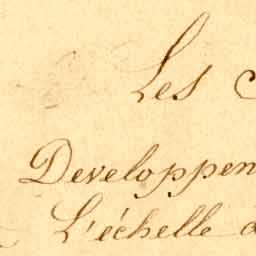 Les
Developpen
L'échelle d